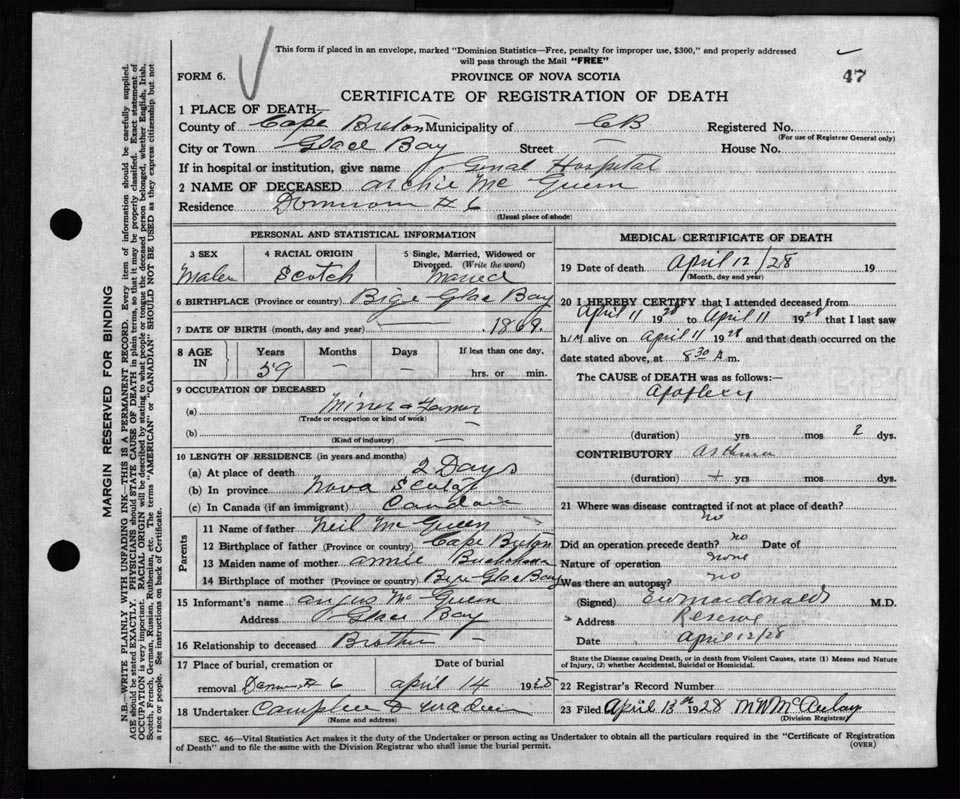 This form if placed in an envelope, marked "Dominion Statistics—Free, penalty for improper use, $300," and properly addressed
will pass through the Mail "FREE"
47
FORM 6.
PROVINCE OF NOVA SCOTIA
CERTIFICATE OF REGISTRATION OF DEATH
1 PLACE OF DEATH—
County of Cape Breton Municipality of CB Registered No.
(For use of Registrar General only)
City or Town Glace Bay Street — House No.
If in hospital or institution, give name Genal Hospital
2 NAME OF DECEASED Archie Mc Queen
Residence Dominion # 6
(Usual place of abode)
PERSONAL AND STATISTICAL INFORMATION
3 SEX
Male
4 RACIAL ORIGIN
Scotch
5 Single, Married, Widowed or
Divorced. (Write the word)
Married
6 BIRTHPLACE (Province or country) Bige Glac Bay
7 DATE OF BIRTH (month, day and year) — 1869.
8 AGE IN
Years Months Days If less than one day,
59 — — hrs. or min.
9 OCCUPATION OF DECEASED
(a) Miner & Farmer
(Trade or occupation or kind of work)
(b) —
(Kind of industry)
10 LENGTH OF RESIDENCE (in years and months)
(a) At place of death 2 Days
(b) In province Nova Scotia
(c) In Canada (if an immigrant)
Parents
11 Name of father Neil Mc Queen
12 Birthplace of father (Province or country) Cape Breton
13 Maiden name of mother Annie Buchanan
14 Birthplace of mother (Province or country) Bige Glac Bay
15 Informant's name Angus Mc Queen
Address Glace Bay
16 Relationship to deceased Brother —
17 Place of burial, cremation or
removal # 6
Date of burial
April 14 1928
18 Undertaker Campbell &
(Name and address)
MEDICAL CERTIFICATE OF DEATH
19 Date of death April 12/28 19
(Month, day and year)
20 I HEREBY CERTIFY that I attended deceased from
April 11 1928 to April 11 1928 that I last saw
h/M alive on April 11 1928 and that death occurred on the
date stated above, at 8 30 A.m.
The CAUSE of DEATH was as follows:—
Apoplexy
(duration) yrs mos 2 dys.
CONTRIBUTORY Asthma
(duration) yrs mos dys.
21 Where was disease contracted if not at place of death?
no
Did an operation precede death? no Date of
Nature of operation none
Was there an autopsy? no
(Signed) Macdonald M.D.
Address Reserve
Date April 12/28
State the Disease causing Death, or in death from Violent Causes, state (1) Means and Nature
of Injury, (2) whether Accidental, Suicidal or Homicidal.
22 Registrar's Record Number
23 Filed April 13th 1928 MW McAulay
(Division Registrar)
SEC. 46—Vital Statistics Act makes it the duty of the Undertaker or person acting as Undertaker to obtain all the particulars required in the "Certificate of Registration
of Death" and to file the same with the Division Registrar who shall issue the burial permit.
(OVER)
MARGIN RESERVED FOR BINDING
N.B.—WRITE PLAINLY WITH UNFADING INK—THIS IS A PERMANENT RECORD. Every item of information should be carefully supplied.
AGE should be stated EXACTLY. PHYSICIANS should STATE CAUSE OF DEATH in plain terms, so that it may be properly classified. Exact statement of
OCCUPATION is very important. RACIAL ORIGIN will be described by stating to what people or tongue the deceased person belonged, whether English, Irish,
Scotch, French, German, Russian, Ruthenian, etc. The terms "AMERICAN" or "CANADIAN" SHOULD NOT BE USED as they express citizenship but not
a race or people. See instructions on back of Certificate.